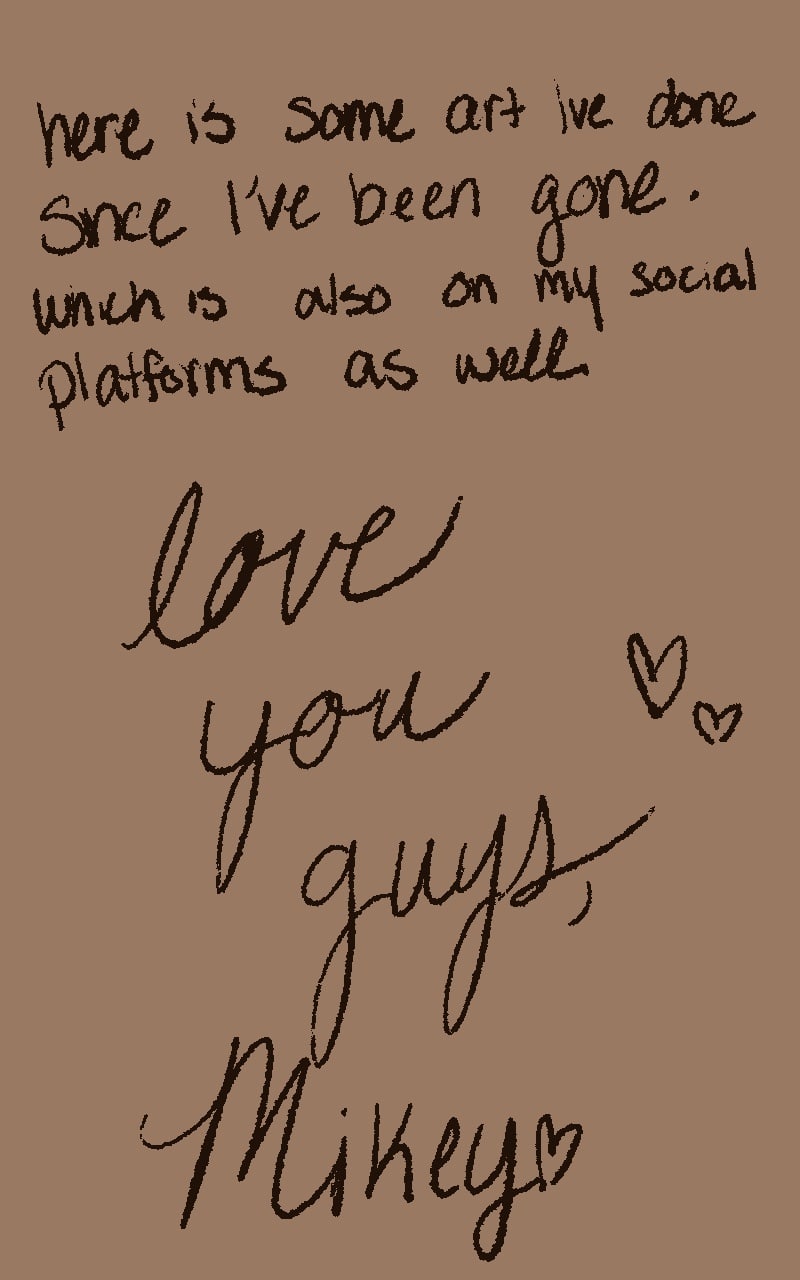 here is some art Ive done
Since I've been gone.
which is also on my social
Platforms as well
love
you
guys,
Mikey